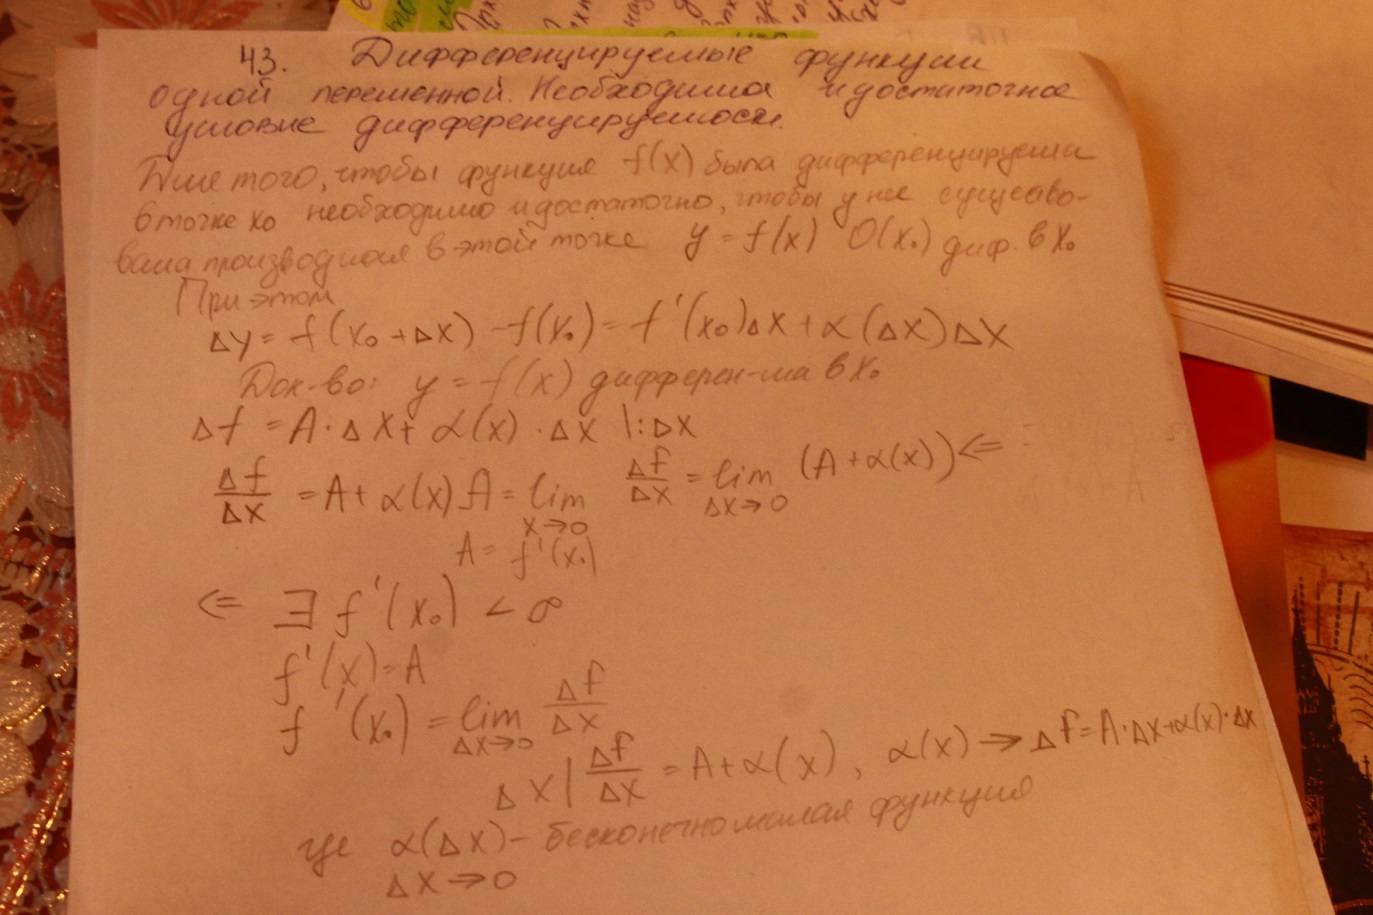 43. Дифференцируемые функции
одной переменной. Необходимое и достаточное
условие дифференцируемости.
Для того, чтобы функция f(x) была дифференцируема
в точке x₀ необходимо и достаточно, чтобы у нее существо-
вала производная в этой точке y = f(x) O(x₀) диф. в x₀
При этом
Δy = f(x₀ + Δx) - f(x₀) = f'(x₀)Δx + α(Δx)Δx
Док-во: y = f(x) дифферен-ма в x₀
Δf = A·Δx + α(x)·Δx |:Δx
Δf/Δx = A + α(x) A = lim x→0 Δf/Δx = lim Δx→0 (A + α(x)) <=
A = f'(x₀)
<= ∃ f'(x₀) < ∞
f'(x) = A
f'(x₀) = lim Δx→0 Δf/Δx
Δx | Δf/Δx = A + α(x), α(x) → Δf = A·Δx + α(x)·Δx
где α(Δx) - бесконечно малая функция
Δx → 0